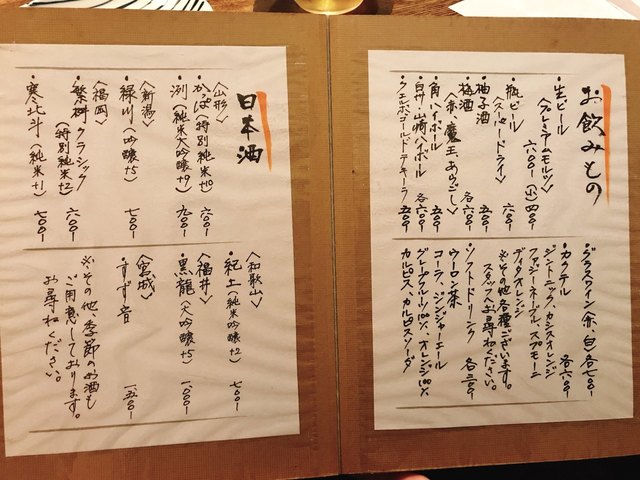 お飲みもの
・生ビール
〈プレミアムモルツ〉
六〇〇- (小)四〇〇-
・瓶ビール
〈スーパードライ〉 六〇〇-
・柚子酒 五〇〇-
・梅酒
〈赤、魔王、あらごし〉 各六〇〇-
・角ハイボール 五〇〇-
・白州・山崎ハイボール 各六〇〇-
・クエルボゴールドテキーラ 五〇〇-
・グラスワイン(赤、白)各七〇〇-
・カクテル 各六〇〇-
ジントニック、カシスオレンジ
ファジーネーブル、スプモーニ
ディタオレンジ
※その他各種ございます。
スタッフへお尋ねください。
・ソフトドリンク 各三〇〇-
ウーロン茶
コーラ、ジンジャーエール
グレープフルーツ100%、オレンジ100%
カルピス、カルピスソーダ
日本酒
〈山形〉
・かっぱ(特別純米+10) 六〇〇-
・洌(純米大吟醸+9) 九〇〇-
〈新潟〉
・緑川(吟醸+5) 七〇〇-
〈福岡〉
・繁桝 クラシック
(特別純米+2) 六〇〇-
・寒北斗(純米+1) 七〇〇-
〈和歌山〉
・紀土(純米吟醸+2) 七〇〇-
〈福井〉
・黒龍(大吟醸+5) 一,〇〇〇-
〈宮城〉
・すず音 一,五〇〇-
※その他、季節のお酒も
ご用意しております。
お尋ねください。